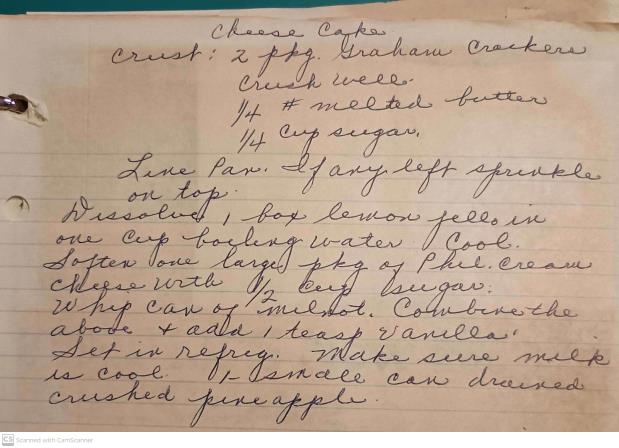 Cheese Cake
Crust: 2 pkg. Graham Crackers
Crush well.
1/4 # melted butter
1/4 cup sugar.
Line Pan. If any left sprinkle
on top.
Dissolve 1 box lemon jello in
one cup boiling water. Cool.
Soften one large pkg of Phil. Cream
cheese with 1/2 cup sugar.
Whip can of milnot. Combine the
above & add 1 teasp vanilla.
Set in refrig. Make sure milk
is cool. 1 - small can drained
crushed pineapple.
CS Scanned with CamScanner